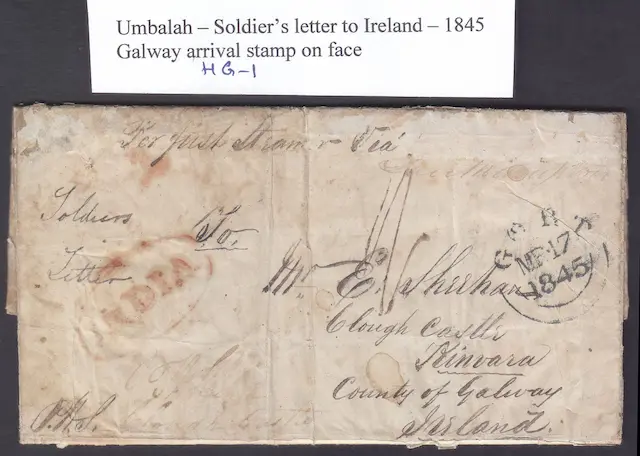 Umbalah – Soldier's letter to Ireland – 1845
Galway arrival stamp on face
HG-1
Per first Steamer Via
Soldiers
Letter
To
INDIA
GORT
MR 17
1845
Mr E. Sheehan
Clough Castle
Kinvara
County of Galway
Ireland.